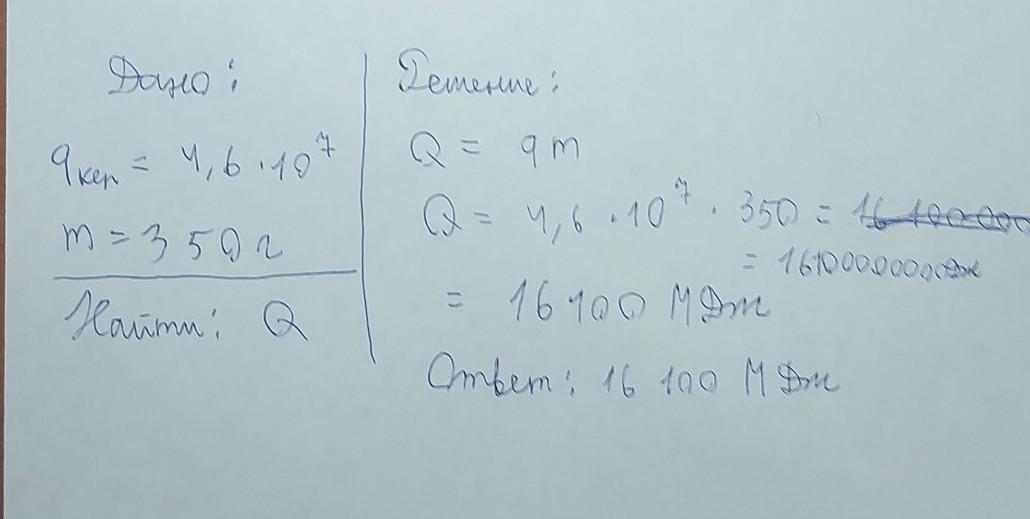 Дано:
qкер = 4,6 · 10⁷
m = 350 г
Найти: Q
Решение:
Q = qm
Q = 4,6 · 10⁷ · 350 = 16 100 000
= 16100000000 Дж
= 16 100 МДж
Ответ: 16 100 МДж